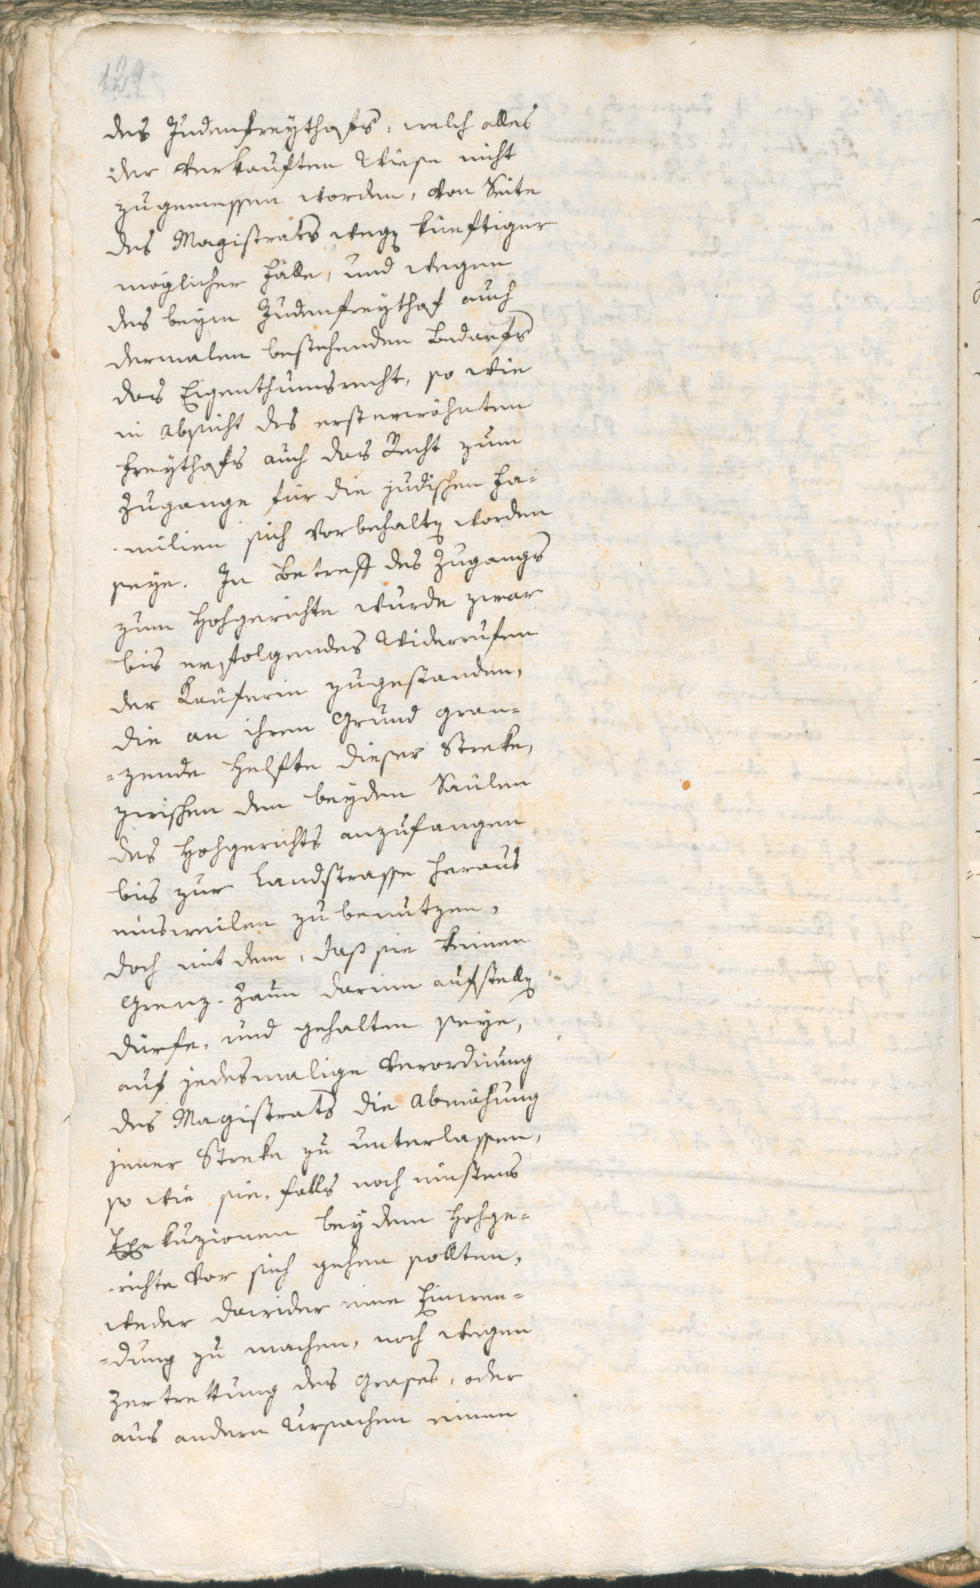 129
des Judenfreythofs, welch alles
der verkauften Wiese nicht
zugemessen worden, von Seite
des Magistrats weg künftiger
möglicher Fälle, und wegen
des beym Judenfreythof auch
dermalen bestehenden Bedarfs
das Eigenthumsrecht, so wie
in Absicht des ersterwöhnten
Freythofs auch das Recht zum
Zugange für die jüdischen Fa=
=milien sich vorbehalt worden
seye. In Betreff des Zugangs
zum Hohgerichte wurde zwar
bis erfolgendes Widerrufen
der Käuferin zugestanden,
die an ihrem Grund gran=
=zende Helfte dieser Streke,
zwischen den beyden Säulen
des Hohgerichts anzufangen
bis zur Landstrasse heraus
einsweilen zu benutzen,
doch mit dem, daß sie keinen
Grenz-Zaun darinn aufstell
dürfe, und gehalten seye,
auf jedesmalige Verordnung
des Magistrats die Abmähung
jener Streke zu unterlassen,
so wie sie, falls noch einstens
Exekuzionen bey dem Hohge=
=richte vor sich gehen sollten,
weder dawider eine Einwen=
=dung zu machen, noch wegen
Zertrettung des Grases, oder
aus andern Ursachen einen